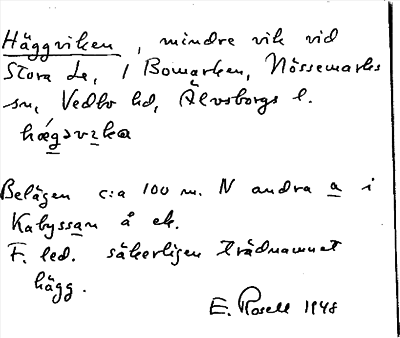 Häggviken, mindre vik vid
Stora Le, i Bowarken, Nössemarks
sn, Vedbo hd, Älvsborgs l.
hæ̱gəvɪka
Belägen c:a 100 m. N andra a i
Kabyssan å ek.
F. led. säkerligen trädnamnet
hägg.
E. Rosell 1948